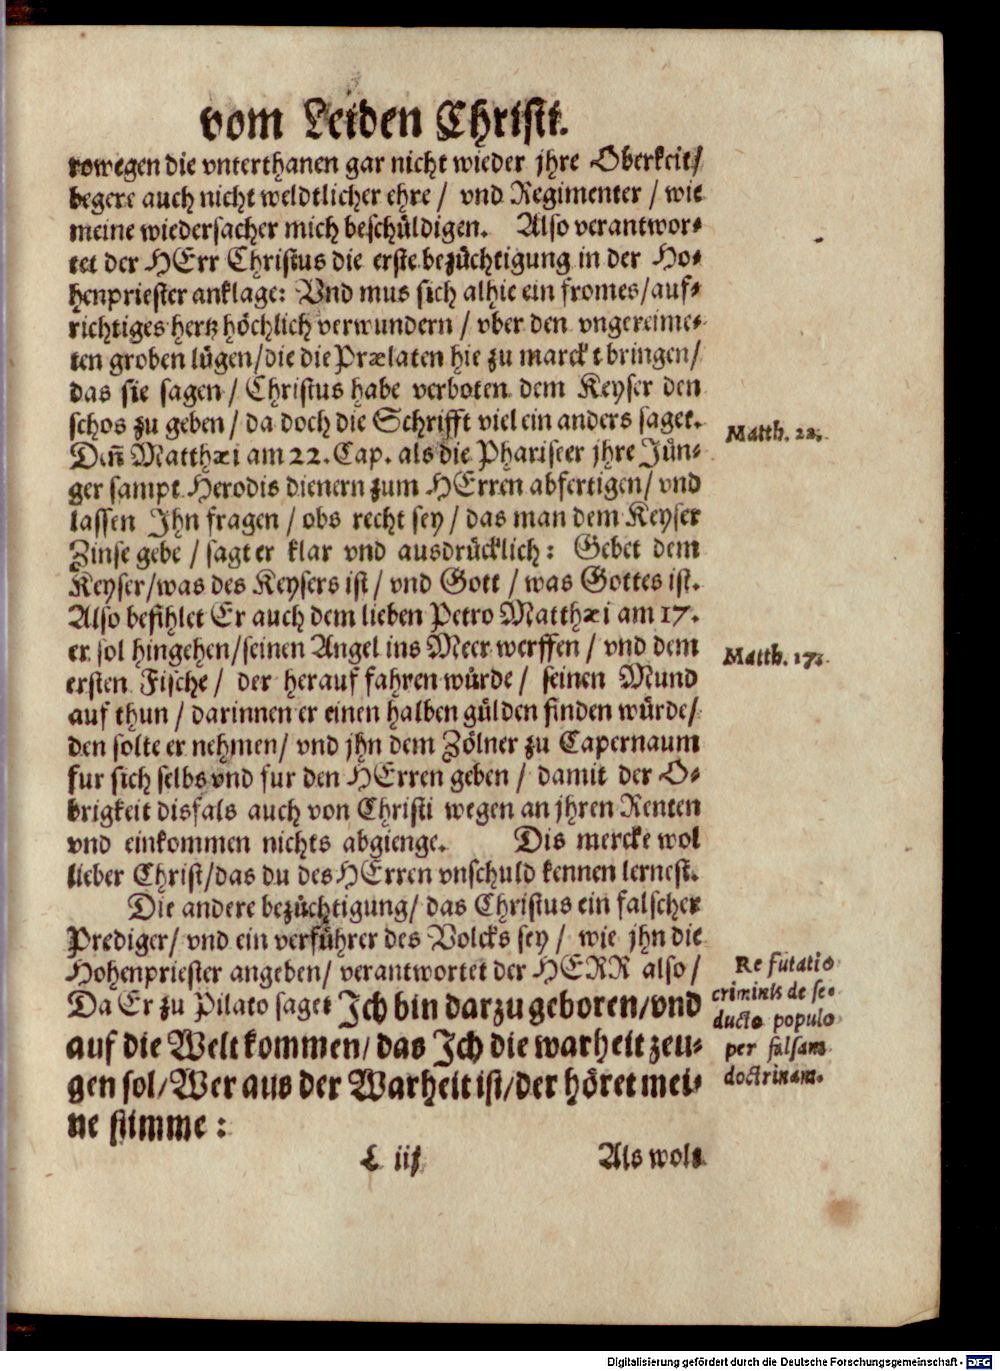 vom Leiden Christi.
rowegen die vnterthanen gar nicht wieder jhre Oberkeit/
begere auch nicht weldtlicher ehre / vnd Regimenter / wie
meine wiedersacher mich beschüldigen. Also verantwor-
tet der HErr Christus die erste bezüchtigung in der Ho-
henpriester anklage: Vnd mus sich alhie ein fromes/auf-
richtiges hertz höchlich verwundern / vber den vngereime-
ten groben lügen/die die Prælaten hie zu marckt bringen/
das sie sagen / Christus habe verboten dem Keyser den
schos zu geben / da doch die Schrifft viel ein anders saget.
Matth. 22.
Deñ Matthæi am 22. Cap. als die Phariseer jhre Jün-
ger sampt Herodis dienern zum HErren abfertigen/ vnd
lassen Ihn fragen / obs recht sey / das man dem Keyser
Zinse gebe / sagt er klar vnd ausdrücklich: Gebet dem
Keyser/was des Keysers ist / vnd Gott / was Gottes ist.
Also befihlet Er auch dem lieben Petro Matthæi am 17.
er sol hingehen/seinen Angel ins Meer werffen / vnd dem
Matth. 17.
ersten Fische / der herauf fahren würde / seinen Mund
auf thun / darinnen er einen halben gülden finden würde/
den solte er nehmen/ vnd jhn dem Zölner zu Capernaum
fur sich selbs vnd fur den HErren geben / damit der O-
brigkeit disfals auch von Christi wegen an jhren Renten
vnd einkommen nichts abgienge. Dis mercke wol
lieber Christ/das du des HErren vnschuld kennen lernest.
Die andere bezüchtigung/ das Christus ein falscher
Prediger/ vnd ein verführer des Volcks sey / wie jhn die
Hohenpriester angeben/ verantwortet der HERR also /
Refutatio
criminis de se-
ducto populo
per falsam
doctrinam.
Da Er zu Pilato saget Ich bin darzu geboren/vnd
auf die Welt kommen/ das Ich die warheit zeu-
gen sol/Wer aus der Warheit ist/der höret mei-
ne stimme :
L iij
Als wolt
Digitalisierung gefördert durch die Deutsche Forschungsgemeinschaft - DFG